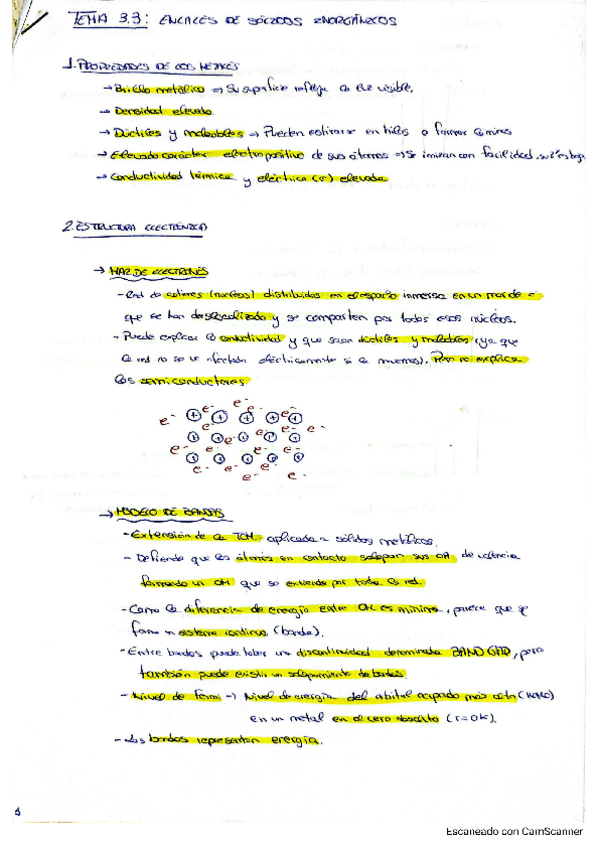 TEMA 3.3: ENLACES DE SÓLIDOS INORGÁNICOS
1. PROPIEDADES DE LOS METALES
→ Brillo metálico → Su superficie refleja la luz visible.
→ Densidad elevada
→ Dúctiles y maleables → Pueden estirarse en hilos o formar láminas
→ Elevado carácter electropositivo de sus átomos → Se ionizan con facilidad.
→ Conductividad térmica y eléctrica (σ) elevada
2. ESTRUCTURA ELECTRÓNICA
→ MAR DE ELECTRONES
- Red de cationes (núcleos) distribuidos en el espacio inmersa en un mar de e⁻
que se han deslocalizado y se comparten por todos esos núcleos.
- Puede explicar la conductividad y que sean dúctiles y maleables (ya que
la red no se ve afectada eléctricamente si la movemos). Pero no explica
los semiconductores
e⁻ e⁻ e⁻ e⁻ e⁻
+ + + + +
e⁻ e⁻ e⁻ e⁻
e⁻ e⁻ e⁻ e⁻
→ MODELO DE BANDAS
- Extensión de la TOM aplicada a sólidos metálicos.
- Defiende que los átomos en contacto solapan sus OA de valencia
formando un OM que se extiende por toda la red.
- Como la diferencia de energía entre OM es mínima, parece que
forma un sistema continuo (banda).
- Entre bandas puede haber una discontinuidad denominada BAND GAP, pero
también puede existir un solapamiento de bandas.
- Nivel de Fermi → Nivel de energía del orbital ocupado más alto (HOMO)
en un metal en el cero absoluto (T=0K).
- Las bandas representan energía.
Escaneado con CamScanner